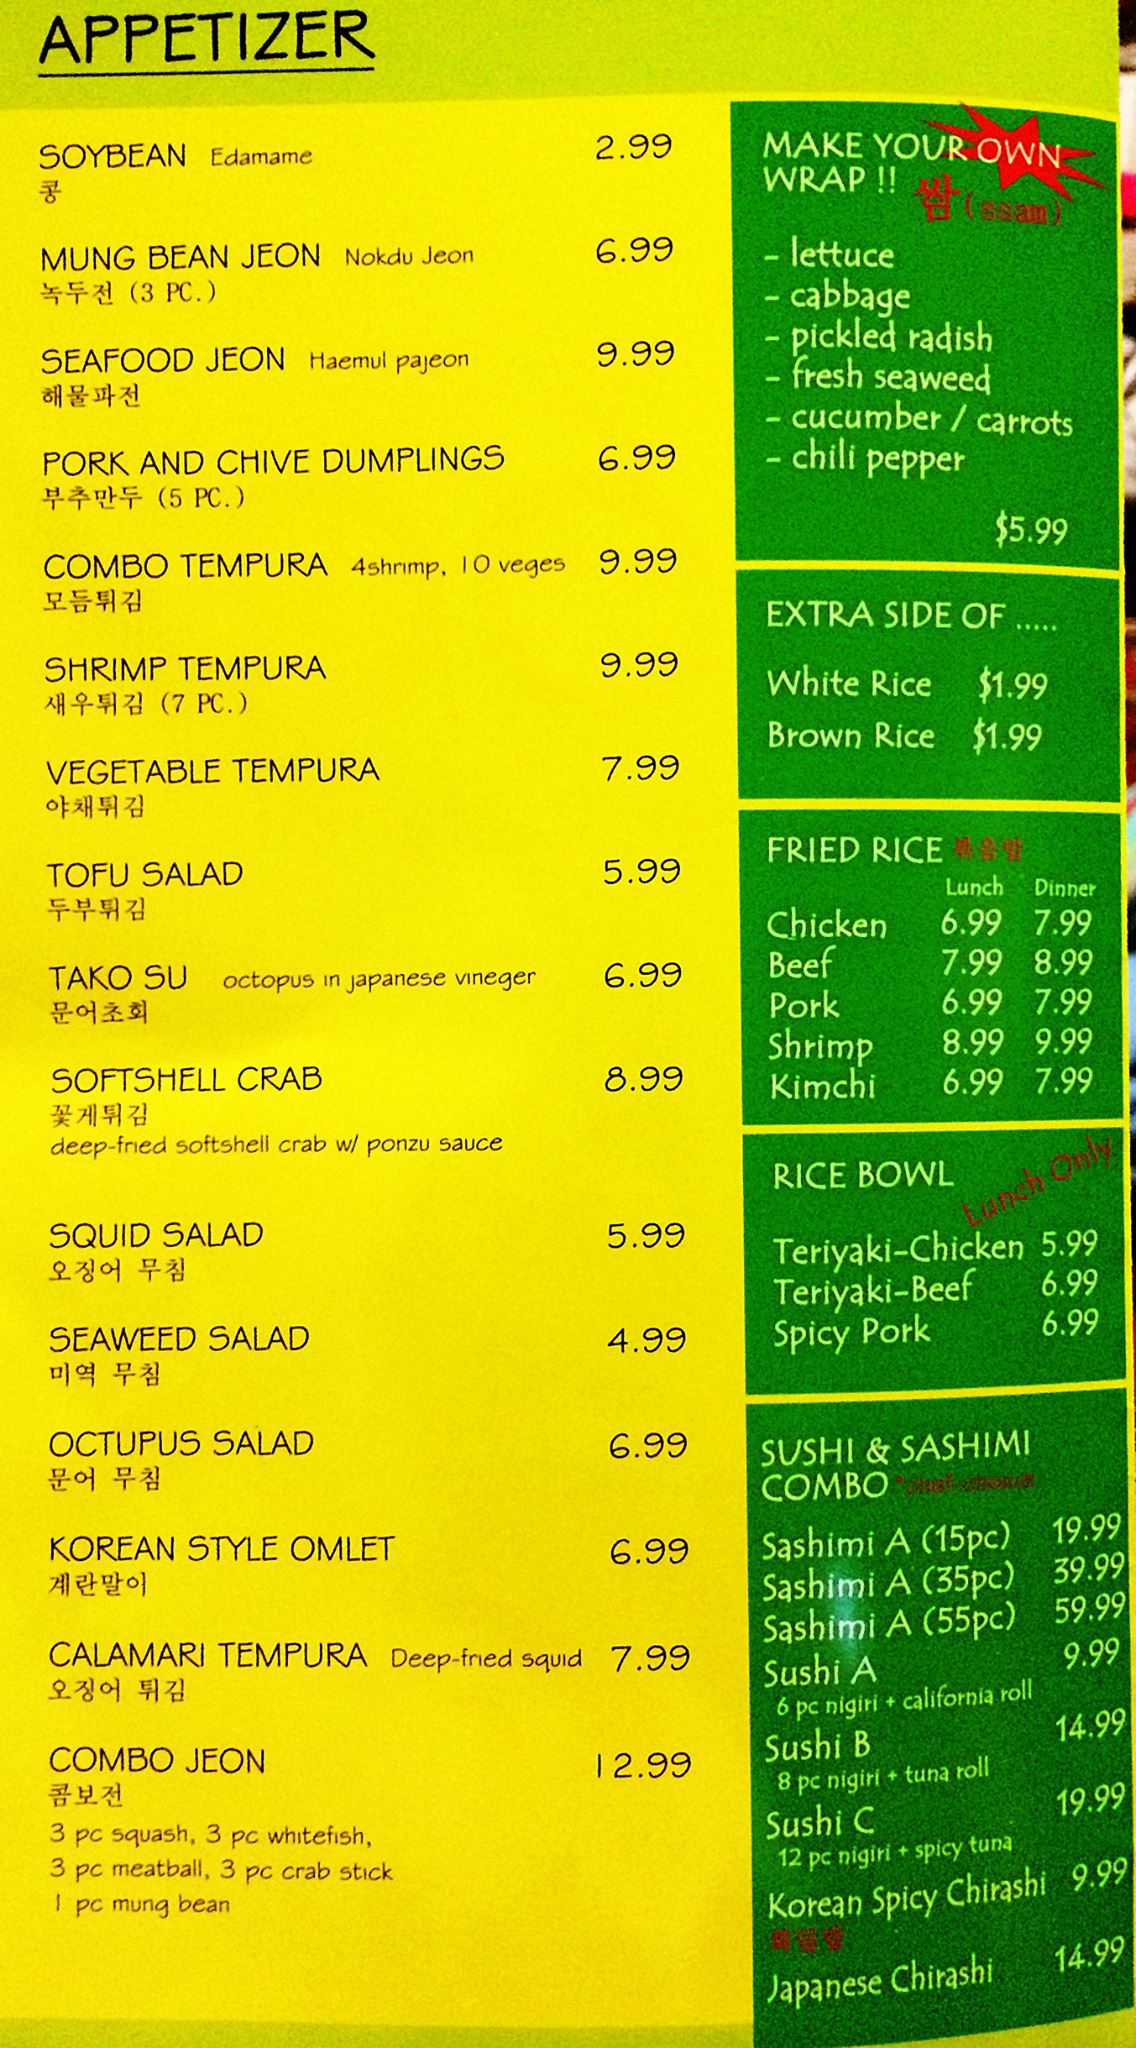 APPETIZER
SOYBEAN Edamame 2.99
콩
MUNG BEAN JEON Nokdu Jeon 6.99
녹두전 (3 PC.)
SEAFOOD JEON Haemul pajeon 9.99
해물파전
PORK AND CHIVE DUMPLINGS 6.99
부추만두 (5 PC.)
COMBO TEMPURA 4shrimp, 10 veges 9.99
모듬튀김
SHRIMP TEMPURA 9.99
새우튀김 (7 PC.)
VEGETABLE TEMPURA 7.99
야채튀김
TOFU SALAD 5.99
두부튀김
TAKO SU octopus in japanese vineger 6.99
문어초회
SOFTSHELL CRAB 8.99
꽃게튀김
deep-fried softshell crab w/ ponzu sauce
SQUID SALAD 5.99
오징어 무침
SEAWEED SALAD 4.99
미역 무침
OCTUPUS SALAD 6.99
문어 무침
KOREAN STYLE OMLET 6.99
계란말이
CALAMARI TEMPURA Deep-fried squid 7.99
오징어 튀김
COMBO JEON 12.99
콤보전
3 pc squash, 3 pc whitefish,
3 pc meatball, 3 pc crab stick
1 pc mung bean
MAKE YOUR OWN
WRAP !! 쌈(ssam)
- lettuce
- cabbage
- pickled radish
- fresh seaweed
- cucumber / carrots
- chili pepper
$5.99
EXTRA SIDE OF .....
White Rice $1.99
Brown Rice $1.99
FRIED RICE 볶음밥
Lunch Dinner
Chicken 6.99 7.99
Beef 7.99 8.99
Pork 6.99 7.99
Shrimp 8.99 9.99
Kimchi 6.99 7.99
RICE BOWL Lunch Only
Teriyaki-Chicken 5.99
Teriyaki-Beef 6.99
Spicy Pork 6.99
SUSHI & SASHIMI
COMBO
Sashimi A (15pc) 19.99
Sashimi A (35pc) 39.99
Sashimi A (55pc) 59.99
Sushi A 9.99
6 pc nigiri + california roll
Sushi B 14.99
8 pc nigiri + tuna roll
Sushi C 19.99
12 pc nigiri + spicy tuna
Korean Spicy Chirashi 9.99
Japanese Chirashi 14.99